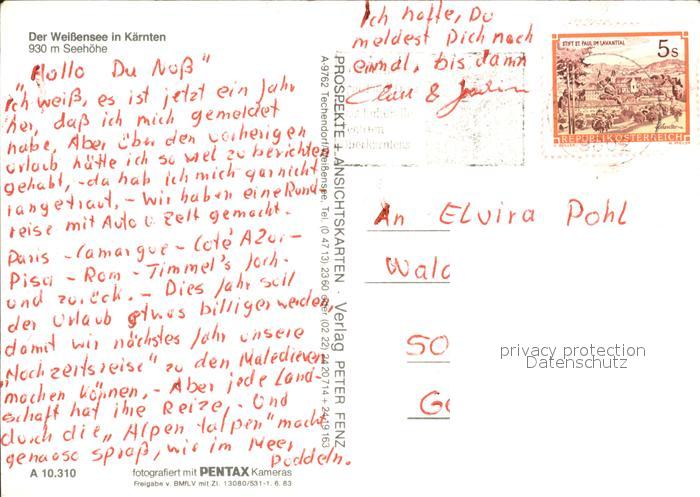 Der Weißensee in Kärnten
930 m Seehöhe
"Hallo Du Nuß"
ich weiß, es ist jetzt ein Jahr
her, daß ich mich gemeldet
habe, Aber über den vorherigen
Urlaub hätte ich so viel zu berichten
gehabt, - da hab ich mich garnicht
rangetraut. - Wir haben eine Rund-
reise mit Auto u. Zelt gemacht.
Paris - Camargue - Coté Azur -
Pisa - Rom - Timmel's Joch -
und zurück. - Dies Jahr soll
der Urlaub etwas billiger werden,
damit wir nächstes Jahr unsere
"Hochzeitsreise" zu den Malediven
machen können. - Aber jede Land-
schaft hat ihre Reize, - Und
durch die "Alpen talpen" macht
genauso Spaß, wie im Meer
Paddeln.
A 10.310
fotografiert mit PENTAX Kameras
Freigabe v. BMfLV mit Zl. 13080/531-1.6.83
PROSPEKTE + ANSICHTSKARTEN · Verlag PETER FENZ
A-9762 Techendorf/Weißensee, Tel. (0 47 13) 23 60 oder (02 22) 24 20 714 + 24 19 163
Ich hoffe, Du
meldest Dich noch
einmal, bis dann
&
STIFT ST. PAUL IM LAVANTTAL
5s
REPUBLIK ÖSTERREICH
An Elvira Pohl
Wald
50
G
privacy protection
Datenschutz